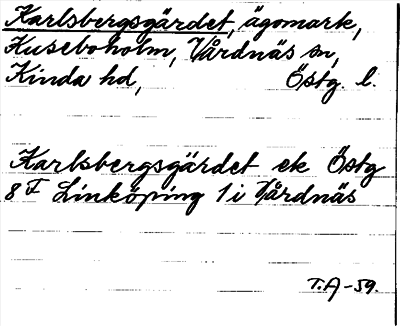 Karlsbergsgärdet, ägomark,
Huseboholm, Vårdnäs sn,
Kinda hd, Östg. l.
Karlsbergsgärdet ek Östg
8 F Linköping 1 i Vårdnäs
T.A-59.